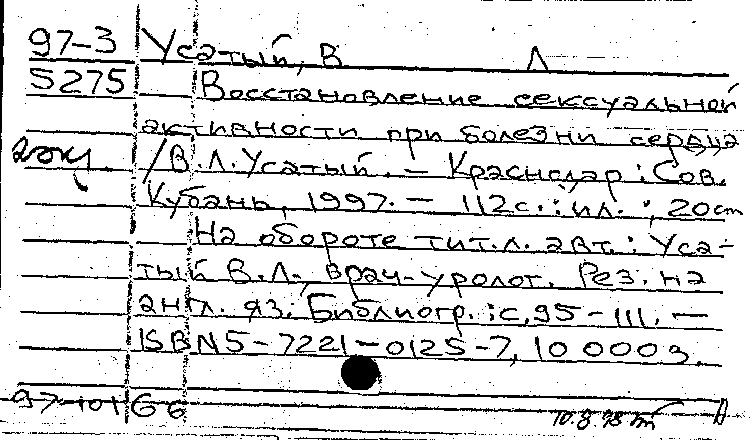 97-3 Усатый, В Л
5275 Восстановление сексуальной
активности при болезни сердца
/В.Л.Усатый. — Краснодар : Сов.
Кубань, 1997. — 112с. : ил. ; 20cm
На обороте тит.л. авт.: Уса-
тый В.Л., врач-уролог. Рез. на
англ. яз. Библиогр.: с.95-111. —
ISBN 5-7221-0125-7, 10 000э.
97-10166